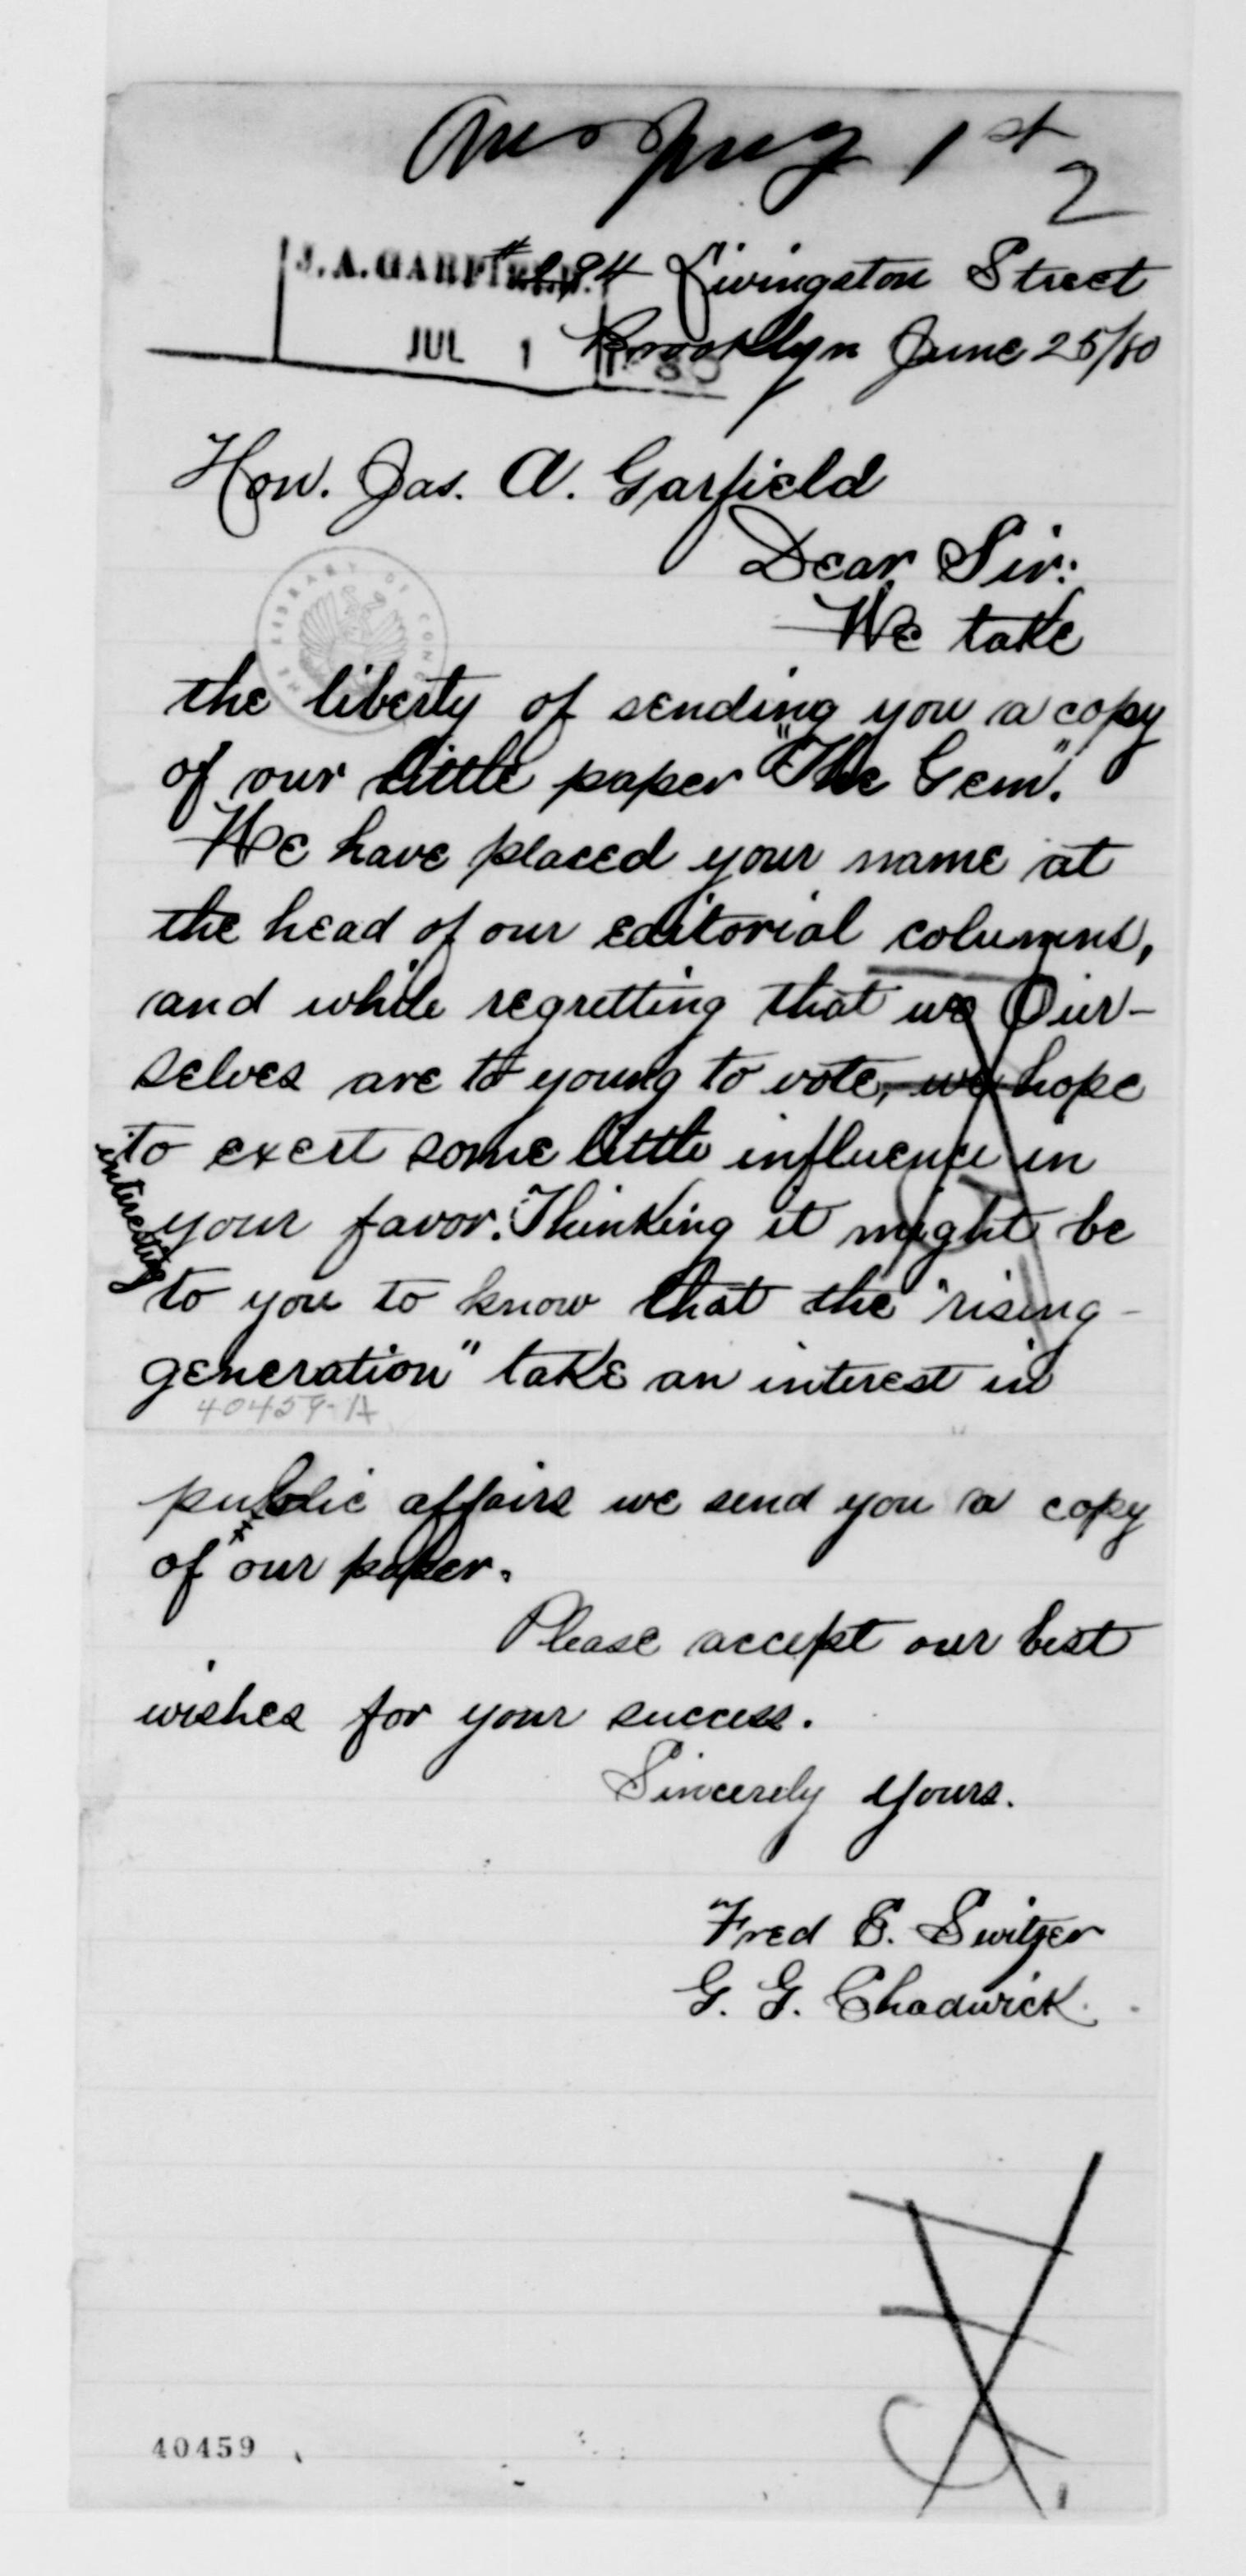 Ans Aug 1st
2
J.A. GARFIELD.
JUL 1 1880
Livingston Street
Brooklyn June 25/80
Hon. Jas. A. Garfield
Dear Sir:
We take
THE LIBRARY OF CONG
the liberty of sending you a copy
of our little paper "The Gem".
We have placed your name at
the head of our editorial columns,
and while regretting that we Our-
selves are to young to vote, we hope
to exert some little influence in
your favor. Thinking it might be
interesting
to you to know that the "rising-
generation" take an interest in
40459-A
public affairs we send you a copy
of our paper.
Please accept our best
wishes for your success.
Sincerely Yours.
Fred S. Switzer
G. G. Chadwick.
40459